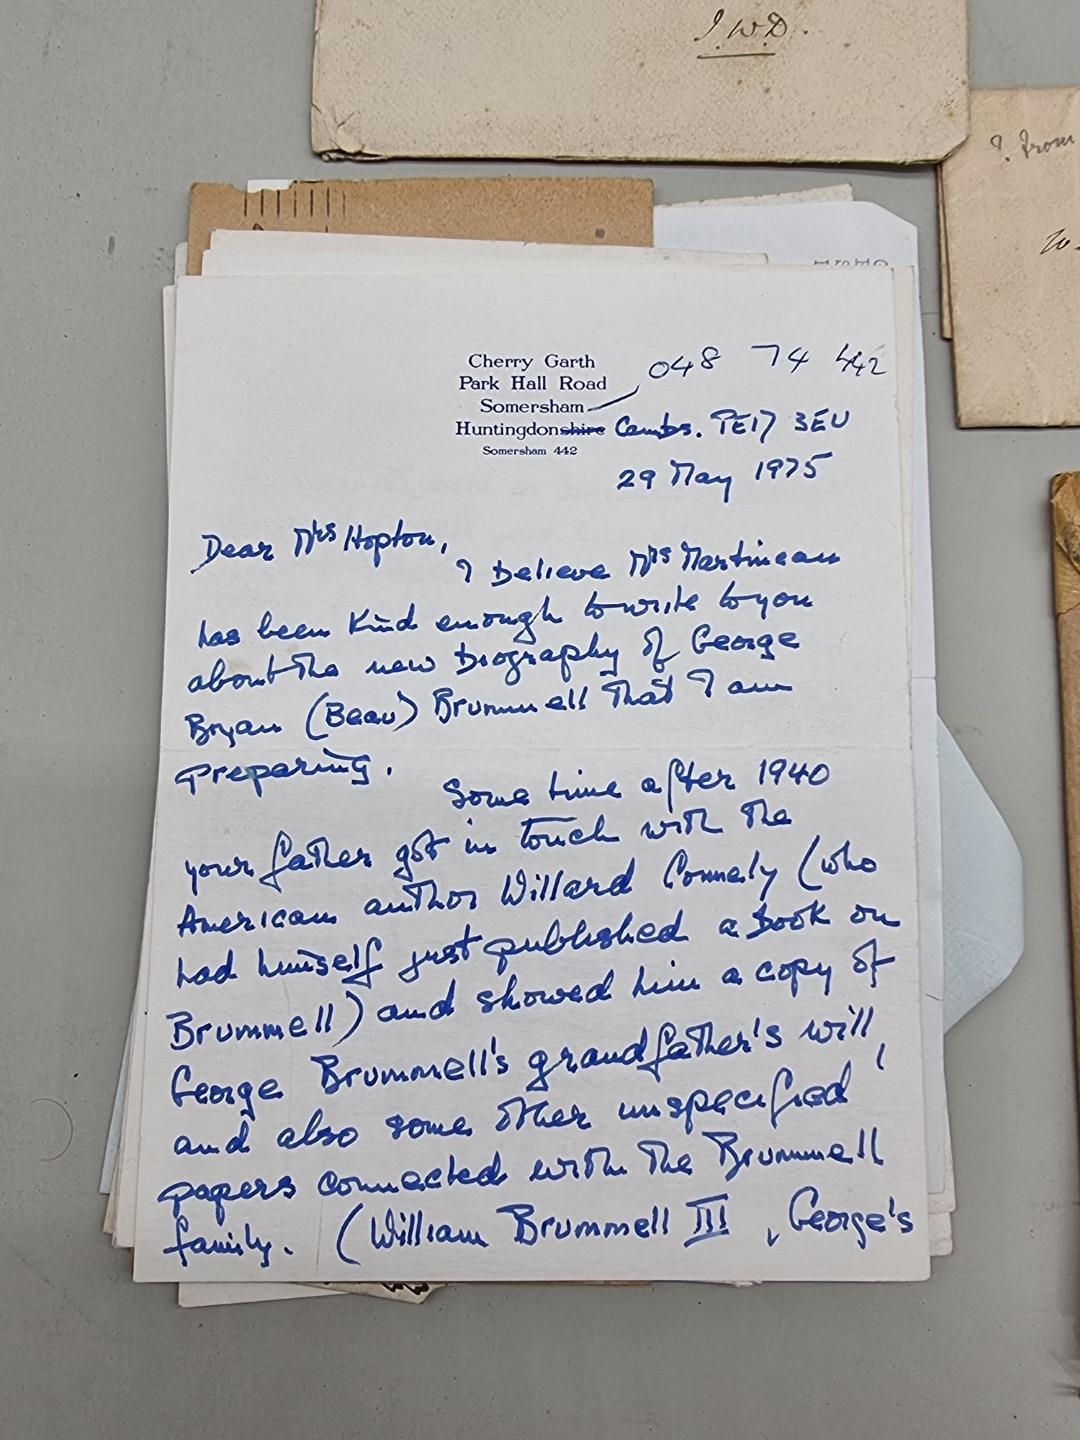 J.W.D.
? From
Cherry Garth
Park Hall Road
Somersham
Huntingdonshire
Somersham 442
048 74 442
Cambs. PE17 3EU
29 May 1975
Dear Mrs Hopton,
I believe Mrs Martineau
has been kind enough to write to you
about the new biography of George
Bryan (Beau) Brummell that I am
preparing.
Some time after 1940
your father got in touch with the
American author Willard Connely (who
had himself just published a book on
Brummell) and showed him a copy of
George Brummell's grandfather's will,
and also some other unspecified
papers connected with the Brummell
family. (William Brummell III, George's